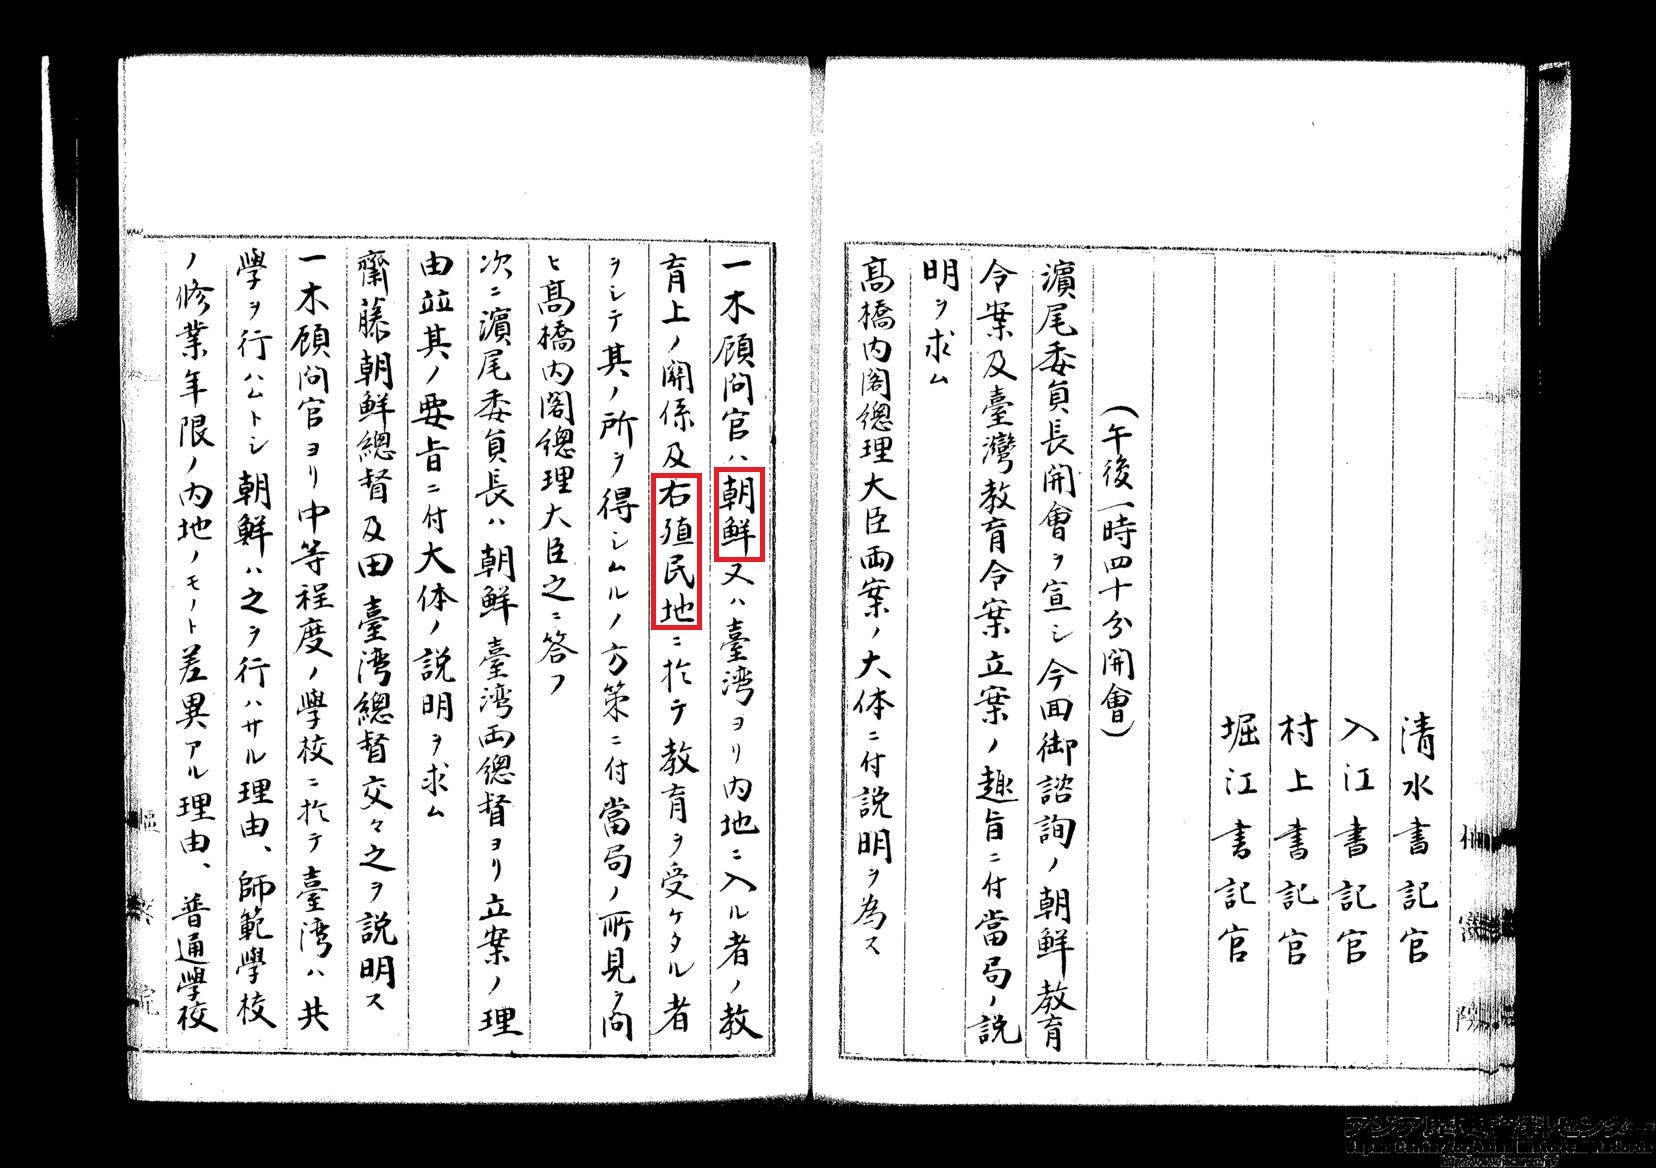 清水書記官
入江書記官
村上書記官
堀江書記官
(午後一時四十分開會)
濵尾委員長開會ヲ宣シ今回御諮詢ノ朝鮮教育
令案及臺灣教育令案立案ノ趣旨ニ付當局ノ説
明ヲ求ム
髙橋内閣總理大臣両案ノ大体ニ付説明ヲ為ス
一木顧問官ハ朝鮮又ハ臺湾ヨリ内地ニ入ル者ノ教
育上ノ関係及右殖民地ニ於テ教育ヲ受ケタル者
ヲシテ其ノ所ヲ得シムルノ方策ニ付當局ノ所見ヲ問
ヒ髙橋内閣總理大臣之ニ答フ
次ニ濵尾委員長ハ朝鮮臺湾両總督ヨリ立案ノ理
由並其ノ要旨ニ付大体ノ説明ヲ求ム
齋藤朝鮮總督及田臺湾總督交々之ヲ説明ス
一木顧問官ヨリ中等程度ノ學校ニ於テ臺湾ハ共
學ヲ行ハムトシ朝鮮ハ之ヲ行ハサル理由、師範學校
ノ修業年限ノ内地ノモノト差異アル理由、普通學校
樞
院
アジア歴史資料センター
Japan Center for Asian Historical Records